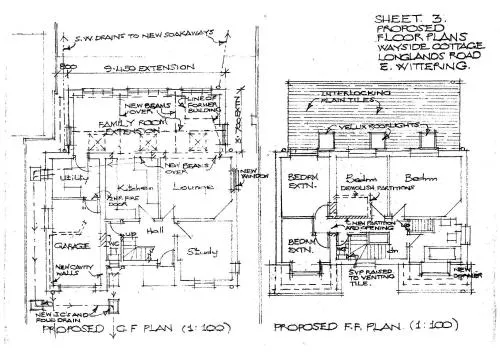 SHEET 3.
PROPOSED
FLOOR PLANS
WAYSIDE COTTAGE
LONGLANDS ROAD
E. WITTERING.
S.W. DRAINS TO NEW SOAKAWAYS
800
9.450 EXTENSION
NEW BEAMS
OVER
LINE OF
FORMER
BUILDING
3.700 EXTN.
FAMILY ROOM
EXTENSION
NEW BEAMS
OVER
Utility
Kitchen
Lounge
NEW
WINDOW
½ HR FIRE
DOOR
UP
Hall
WC
GARAGE
Study
NEW CAVITY
WALLS
NEW I.C'S AND
FOUL DRAIN
PROPOSED G.F PLAN (1:100)
INTERLOCKING
PLAIN TILES
VELUX ROOFLIGHTS
BEDRM
EXTN.
Bedrm
Bedrm
DEMOLISH PARTITIONS
NEW PARTITION
AND OPENING
BEDRM
EXTN.
dn
SVP RAISED
TO VENTING
TILE.
NEW
DORMER
PROPOSED F.F. PLAN (1:100)